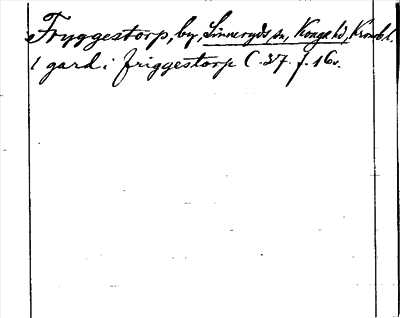 Fryggestorp, by, Linneryds sn, Konga hd, Kronob. l.
1 gard i friggestorp C. 37. f. 16v.